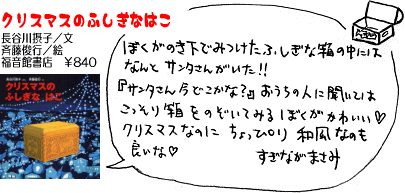 クリスマスのふしぎなはこ
長谷川摂子／文
斉藤俊行／絵
福音館書店　￥840
クリスマスの
ふしぎな はこ
ぼくがのき下でみつけたふしぎな箱の中には
なんと サンタさんがいた!!
『サンタさん今どこかな?』おうちの人に聞いては
こっそり箱をのぞいてみるぼくがかわいい♡
クリスマスなのに ちょっぴり 和風なのも
良いな♡
すぎながまさみ